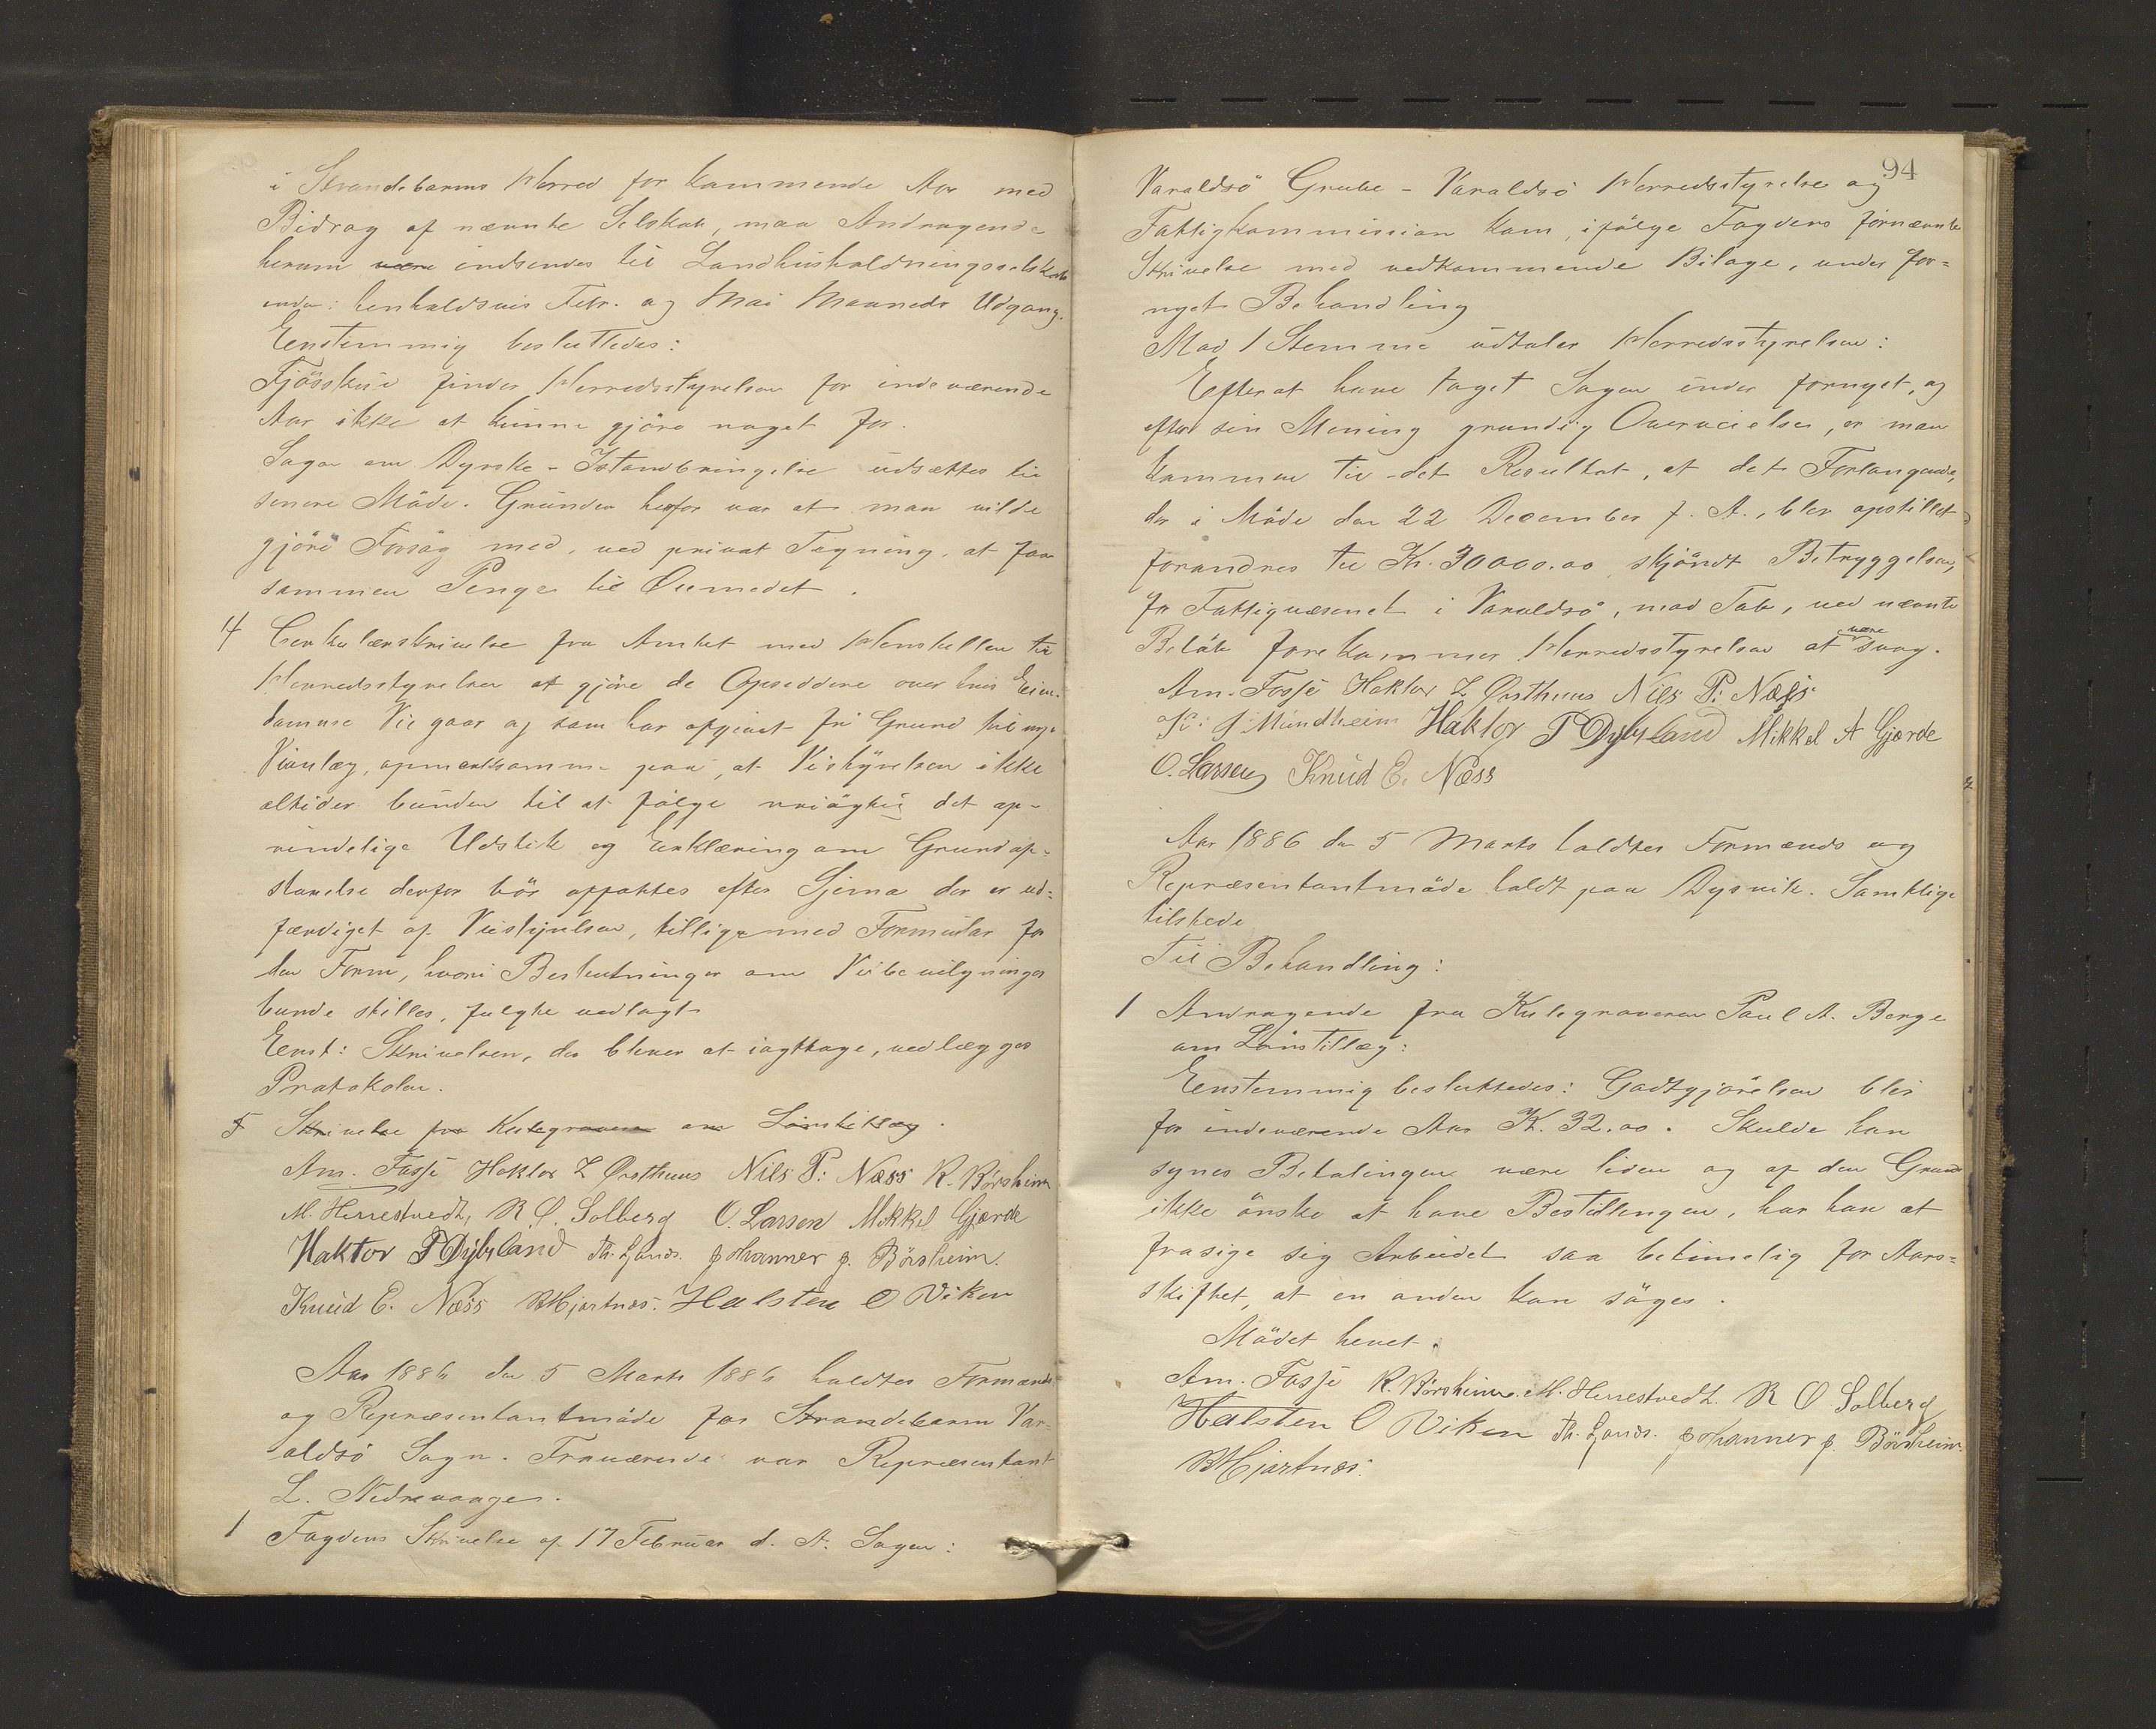 i Strandebarms Herred for kommende Aar med
Bidrag af nævnte Selskab, maa Andragende
herom være indsendes til Landhusholdningsselskabet
inden henholdsvis Febr. og Mai Maaneds Udgang.
Eenstemmig besluttedes:
Fjösskue finder Herredsstyrelsen for indeværende
Aar ikke at kunne gjöre noget for.
Sagen om Dyrske-Istandbringelse udsættes til
senere Möde. Grunden herfor var at man vilde
gjöre Forsög med, ved privat Tegning, at faa
sammen Penge til Öiemedet.
4 Cirkulærskrivelse fra Amtet med Henstillen til
Herredsstyrelsen at gjöre de Opsiddere over hvis Eien-
domme Vei gaar og som har afgivet fri Grund til nye
Veianlæg, opmærksomme paa, at Veistyrelsen ikke
altider bunden til at fölge nöiagtig det op-
rindelige Udstik og Erklæring om Grundaf-
staaelse derfor bör affattes efter Sjema der er ud-
færdiget af Veistyrelsen, tilligemed Formular for
den Form, hvori Beslutninger om Veibevilgninger
burde stilles, fulgte vedlagt
Eenst: Skrivelsen, der bliver at iagttage, vedlægges
Protokolen.
5 Skrivelse fra Kulegraveren om Lönstillæg.
Am. Fosse Haktor L Örsthuus Nils P: Næss R. Börsheim
M. Herrestvedt, R O. Solberg O. Larsen Mikkel Gjerde
Haktor T Dybsland Th. Ljones. Johannes J. Börsheim.
Knud E. Næss BHjartnæs. Halsten O Viken
Aar 1886 den 5 Marts 1886 holdtes Formands
og Repræsentantmöde for Strandebarm Var-
aldsö Sogn. Fraværende var Repræsentant
L. Nedrevaage.
1 Fogdens Skrivelse af 17 Februar d. A. Sagen:
94
Varaldsö Grube - Varaldsö Herredsstyrelse og
Fattigkommission kom, ifölge Fogdens förnævnte
Skrivelse med vedkommende Bilage, under for-
nyet Behandling
Mod 1 Stemme udtaler Herredsstyrelsen:
Efter at have taget Sagen under fornyet, og
efter sin Mening grundig Overveielse, er man
kommen til det Resultat, at det Forlangende,
der i Möde den 22 December f. A., blev opstillet
forandres til Kr. 30000.00, skjöndt Betryggelsen,
for Fattigvæsenet i Varaldsö, mod Tab, ved nævnte
Belöb forekommer Herredsstyrelsen at være svag.
Am. Fosse Haktor L Örsthuus Nils P: Næss
K: J Mundheim Haktor T Dybsland Mikkel A Gjerde
O. Larsen Knud E. Næss
Aar 1886 den 5 Marts holdtes Formands og
Repræsentantmöde holdt paa Dysvik. Samtlige
tilstede
Til Behandling:
1 Andragende fra Kulegraveren Paul A. Berge
om Lönstillæg:
Eenstemmig besluttedes: Godtgjörelsen blir
for indeværende Aar K. 32.00. Skulde han
synes Betalingen være liden og af den Grund
ikke önske at have Bestillingen, har han at
frasige sig Arbeidet saa betimelig för Aars-
skiftet, at en anden kan söges.
Mödet hevet.
Am. Fosse R. Börsheim. M. Herrestvedt. R O. Solberg
Halsten O Viken Th. Ljones. Johannes J. Börsheim.
BHjartnæs.